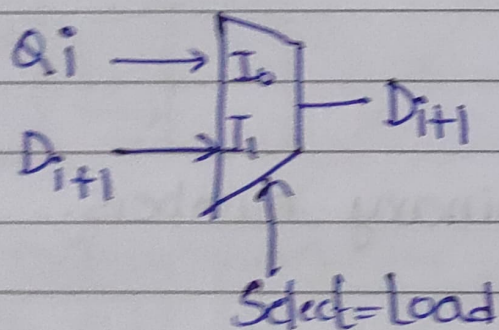 Qi
I₀
D_{i+1}
I₁
D_{i+1}
Select=Load